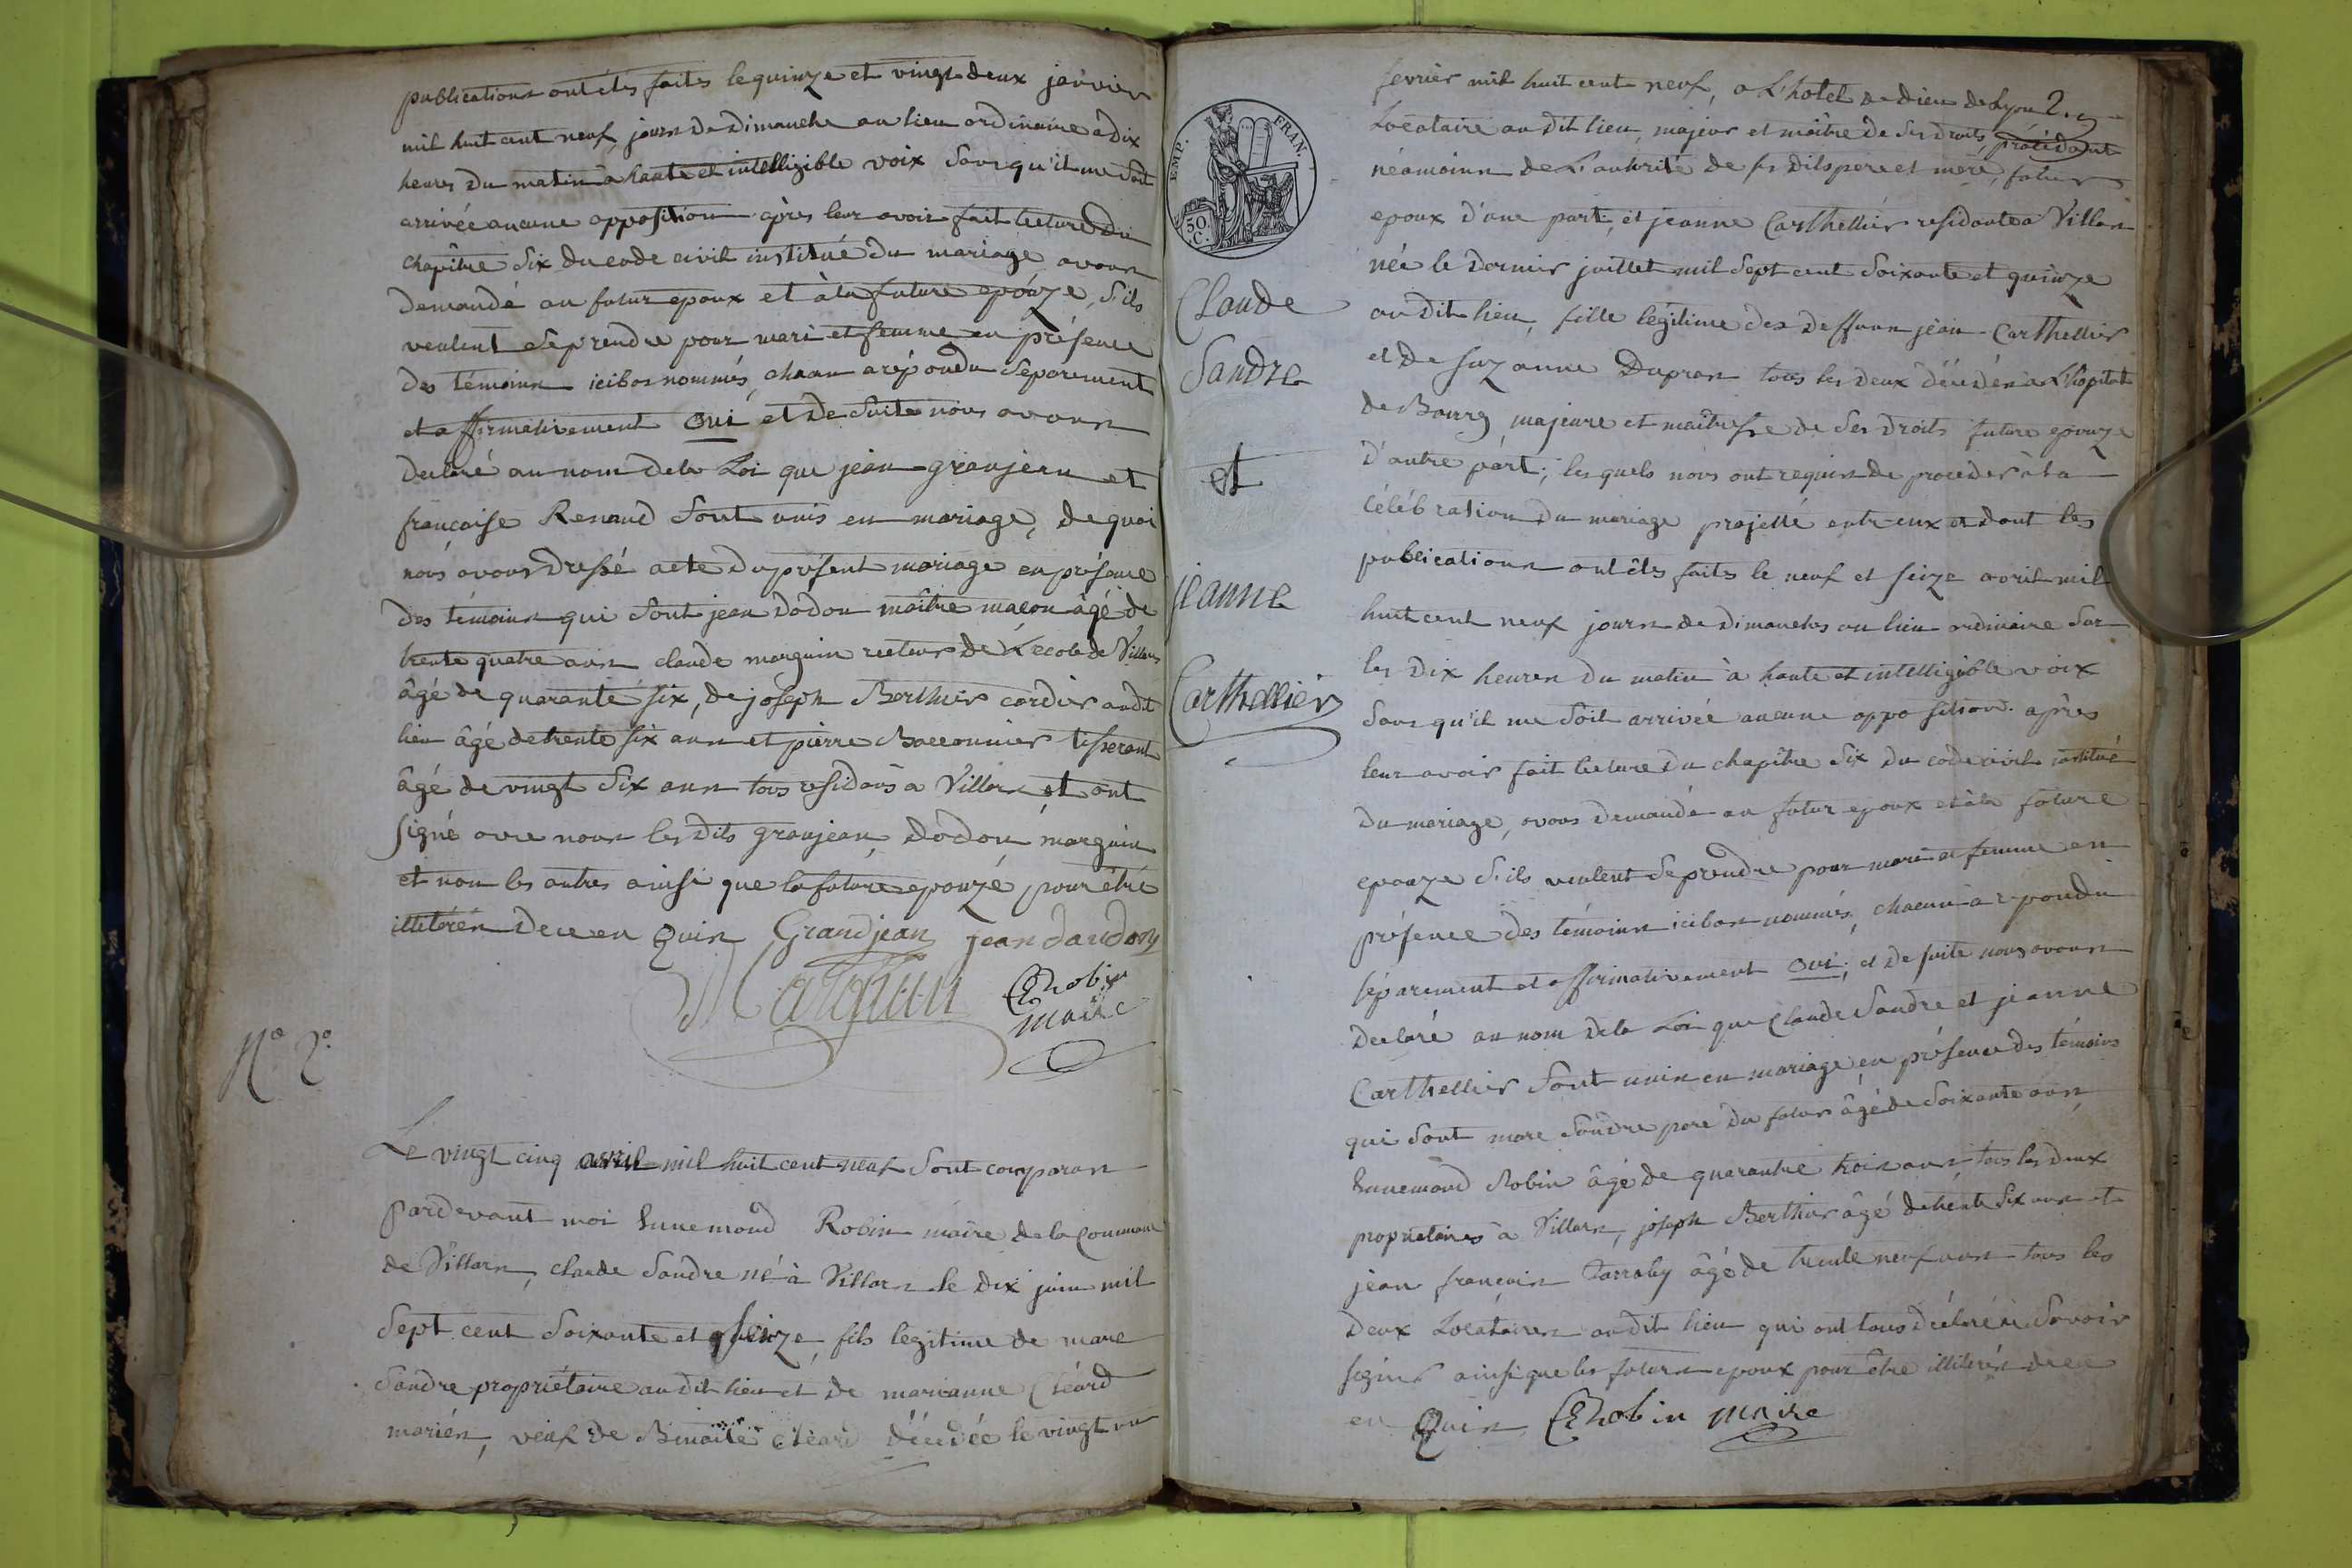 publications ont étés faites le quinze et vingt deux janvier
mil huit cent neuf, jours de Dimanche au lieu ordinaire a dix
heures du matin à haute et intelligible voix sans qu'il me soit
arrivée aucune opposition après leur avoir fait lecture du
chapitre Six du code civil institué du mariage avons
demandé au futur epoux et à la future epouze, S'ils
veulent Se prendre pour mari et femme en présence
des témoins ici bas nommés, chacun a répondu Séparement
et affirmativement oui et de Suite nous avons
declaré au nom de la Loi que jean granjean et
françoise Renaud Sont unis en mariage, de quoi
nous avons dressé acte du présent mariage en présence
des témoins qui Sont jean dodon maître maçon âgé de
trente quatre ans claude marguin recteur de L'ecole de Villars
âgé de quarante six, de joseph Berthier cordier audit
lieu âgé de trente six ans et pierre Baconnier tisserant
âgé de vingt Six ans tous residans a Villars et ont
signé avec nous les dits granjean, dodon, marguin
et non les autres ainsi que la future epouze, pour être
illiterés de ce en quis Grandjean jean daudon
Marguin ERobin
maire
N.º 2.º
Le vingt cinq avril mil huit cent neuf Sont comparus
pardevant moi Ennemond Robin maire de la Commune
de Villars, claude Sandre né à Villars le dix juin mil
Sept cent Soixante et seize, fils legitime de marc
Sandre propriétaire au dit lieu et de marianne Cléard
mariés, veuf de Benoite Cléard décédée le vingt un
EMP. FRAN.
50.
C.
Claude
Sandre
et
jeanne
Carthellier
fevrier mil huit cent neuf, a L'hotel de dieu de Lyon 2.
Locataire au dit lieu, majeur et maître de Ses droits, procédant
néamoins de L'autorité de ses dits pere et mere, futur
epoux d'une part; et jeanne Carthellier residante a Villars
née le dernier juillet mil Sept cent Soixante et quinze
au dit lieu, fille légitime des deffuns jean Carthellier
et de Suzanne Dupras tous les deux décédés a L'hôpital
de Bourg, majeure et maîtresse de Ses droits future epouze
D'autre part; les quels nous ont requis de proceder à la
célébration du mariage projetté entr eux et dont les
publications ont étés faits le neuf et seize avril mil
huit cent neuf jours de dimanches au lieu ordinaire Sur
les dix heures du matin à haute et intelligible voix
Sans qu'il me Soit arrivée aucune opposition. après
leur avoir fait lecture du chapitre Six du code civil institué
du mariage, avons demandé au futur epoux et à la future
epouze S'ils veulent Se prendre pour mari et femme en
présence des témoins ici bas nommés, chacun a répondu
séparement et affirmativement oui; et de suite nous avons
declaré au nom de la Loi que Claude Sandre et jeanne
Carthellier Sont unis en mariage en présence des témoins
qui Sont marc Sandre pere du futur âgé de Soixante ans,
Ennemond Robin âgé de quarante trois ans tous les deux
propriétaires à Villars, joseph Berthier âgé de trente Six ans et
jean françois âgé de trente neuf ans tous les
deux Locataires au dit lieu qui ont tous déclaré ne Savoir
signer ainsi que les futurs epoux pour être illiterés de ce
en quis ERobin maire